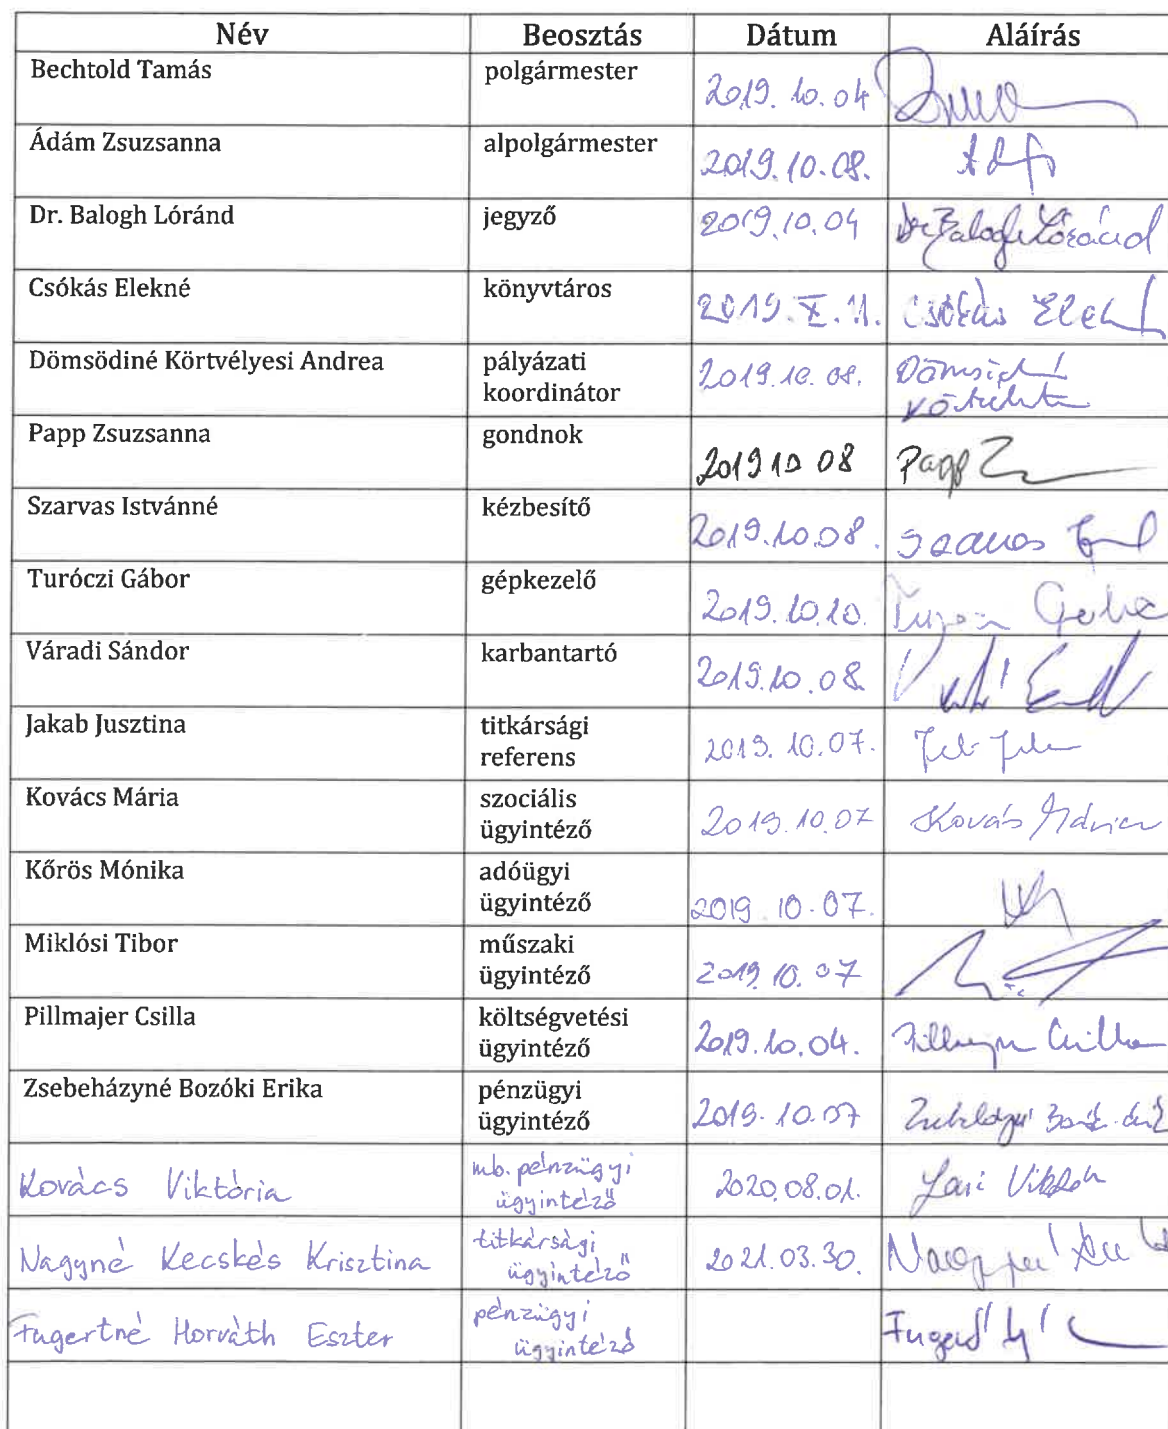 Név Beosztás Dátum Aláírás
Bechtold Tamás polgármester 2019. 10. 04
Ádám Zsuzsanna alpolgármester 2019.10.08.
Dr. Balogh Lóránd jegyző 2019.10.04 Dr Balogh Lóránd
Csókás Elekné könyvtáros 2019. X. 11. Csókás Elekné
Dömsödiné Körtvélyesi Andrea pályázati 2019.10.08.
koordinátor
Papp Zsuzsanna gondnok 2019 10 08 Papp
Szarvas Istvánné kézbesítő 2019.10.08. Szarvas
Turóczi Gábor gépkezelő 2019.10.10.
Váradi Sándor karbantartó 2019.10.08.
Jakab Jusztina titkársági 2019. 10.07.
referens
Kovács Mária szociális 2019.10.07 Kovács Mária
ügyintéző
Kőrös Mónika adóügyi
ügyintéző 2019. 10.07.
Miklósi Tibor műszaki
ügyintéző 2019. 10. 07
Pillmajer Csilla költségvetési
ügyintéző 2019.10.04. Pillmajer Csilla
Zsebeházyné Bozóki Erika pénzügyi
ügyintéző 2019. 10.07
Kovács Viktória mb. pénzügyi 2020.08.01.
ügyintéző
Nagyné Kecskés Krisztina titkársági 2021.03.30.
ügyintéző
Fugertné Horváth Eszter pénzügyi
ügyintéző